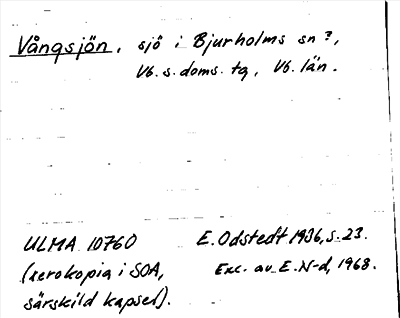 Vångsjön, sjö i Bjurholms sn?,
Vb. s. doms. tg, Vb. län.
ULMA 10760 E. Odstedt 1936, s. 23.
(xerokopia i SOA, Exc. av E. N-d, 1968.
särskild kapsel).